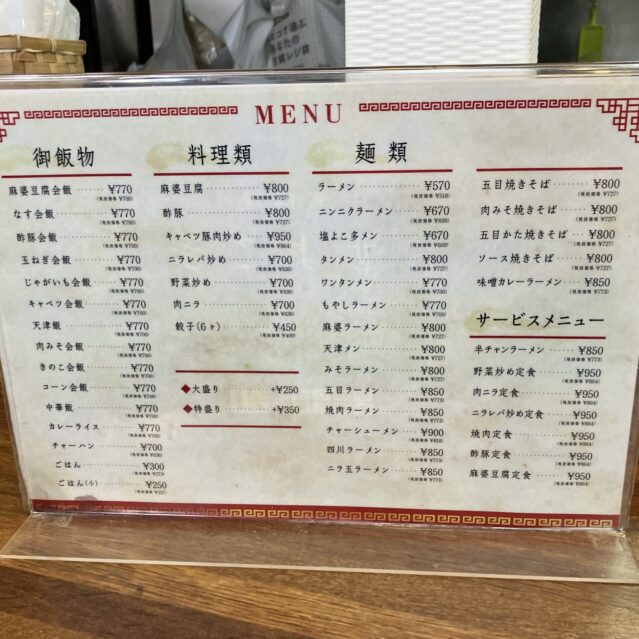 MENU
御飯物
麻婆豆腐会飯 ¥770
(税抜価格 ¥700)
なす会飯 ¥770
(税抜価格 ¥700)
酢豚会飯 ¥770
(税抜価格 ¥700)
玉ねぎ会飯 ¥770
(税抜価格 ¥700)
じゃがいも会飯 ¥770
(税抜価格 ¥700)
キャベツ会飯 ¥770
(税抜価格 ¥700)
天津飯 ¥770
(税抜価格 ¥700)
肉みそ会飯 ¥770
(税抜価格 ¥700)
きのこ会飯 ¥770
(税抜価格 ¥700)
コーン会飯 ¥770
(税抜価格 ¥700)
中華飯 ¥770
(税抜価格 ¥700)
カレーライス ¥770
(税抜価格 ¥700)
チャーハン ¥700
(税抜価格 ¥636)
ごはん ¥300
(税抜価格 ¥273)
ごはん(小) ¥250
(税抜価格 ¥227)
料理類
麻婆豆腐 ¥800
(税抜価格 ¥727)
酢豚 ¥800
(税抜価格 ¥727)
キャベツ豚肉炒め ¥950
(税抜価格 ¥864)
ニラレバ炒め ¥700
(税抜価格 ¥636)
野菜炒め ¥700
(税抜価格 ¥636)
肉ニラ ¥700
(税抜価格 ¥636)
餃子(6ヶ) ¥450
(税抜価格 ¥409)
◆大盛り +¥250
◆特盛り +¥350
麺類
ラーメン ¥570
(税抜価格 ¥518)
ニンニクラーメン ¥670
(税抜価格 ¥609)
塩よこ多メン ¥670
(税抜価格 ¥609)
タンメン ¥800
(税抜価格 ¥727)
ワンタンメン ¥770
(税抜価格 ¥700)
もやしラーメン ¥770
(税抜価格 ¥700)
麻婆ラーメン ¥800
(税抜価格 ¥727)
天津メン ¥800
(税抜価格 ¥727)
みそラーメン ¥800
(税抜価格 ¥727)
五目ラーメン ¥850
(税抜価格 ¥773)
焼肉ラーメン ¥850
(税抜価格 ¥773)
チャーシューメン ¥900
(税抜価格 ¥818)
四川ラーメン ¥850
(税抜価格 ¥773)
ニラ玉ラーメン ¥850
(税抜価格 ¥773)
五目焼きそば ¥800
(税抜価格 ¥727)
肉みそ焼きそば ¥800
(税抜価格 ¥727)
五目かた焼きそば ¥800
(税抜価格 ¥727)
ソース焼きそば ¥800
(税抜価格 ¥727)
味噌カレーラーメン ¥850
(税抜価格 ¥773)
サービスメニュー
半チャンラーメン ¥850
(税抜価格 ¥773)
野菜炒め定食 ¥950
(税抜価格 ¥864)
肉ニラ定食 ¥950
(税抜価格 ¥864)
ニラレバ炒め定食 ¥950
(税抜価格 ¥864)
焼肉定食 ¥950
(税抜価格 ¥864)
酢豚定食 ¥950
(税抜価格 ¥864)
麻婆豆腐定食 ¥950
(税抜価格 ¥864)